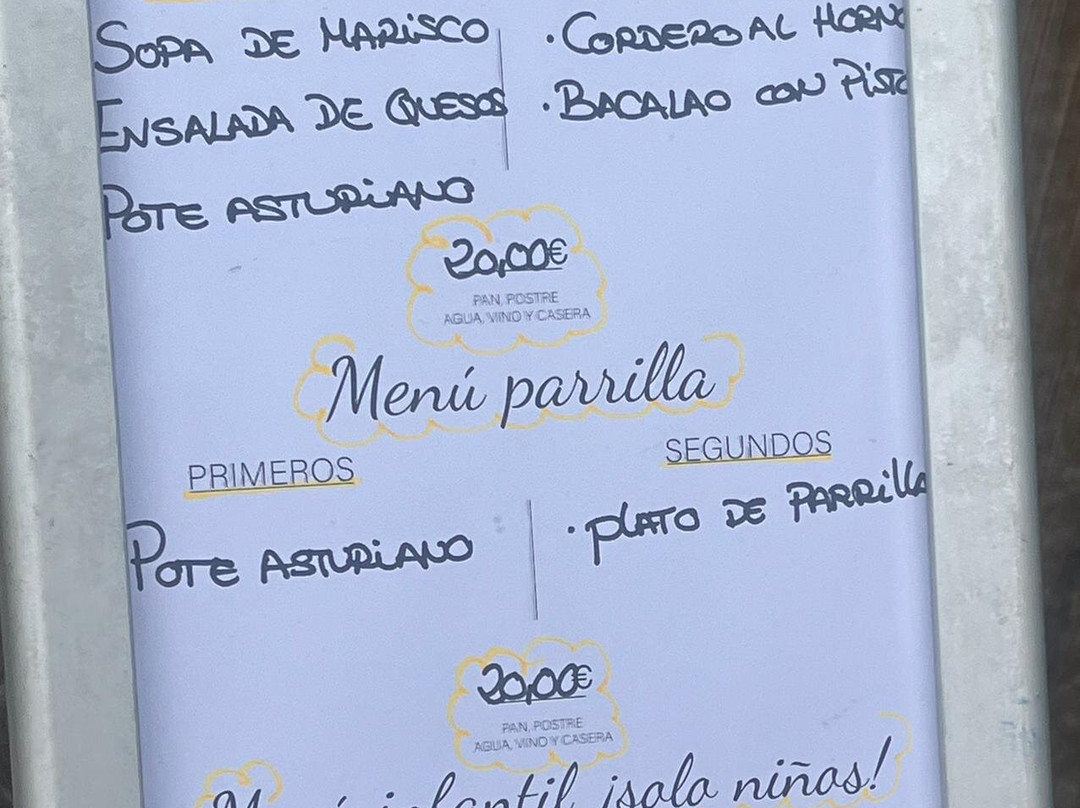 SOPA DE MARISCO
ENSALADA DE QUESOS
POTE ASTURIANO
· CORDERO AL HORNO
· BACALAO CON PISTO
20,00€
PAN, POSTRE
AGUA, VINO Y CASERA
Menú parrilla
PRIMEROS
POTE ASTURIANO
SEGUNDOS
· PLATO DE PARRILLA
20,00€
PAN, POSTRE
AGUA, VINO Y CASERA
Menú infantil ¡solo niños!